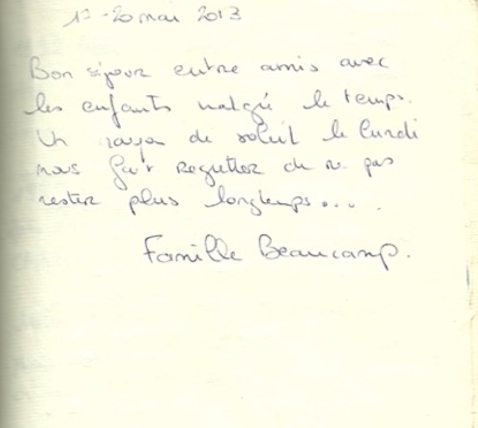 17-20 mai 2013
Bon séjour entre amis avec
les enfants malgré le temps.
Un rayon de soleil le lundi
nous fait regretter de ne pas
rester plus longtemps....
Famille Beaucamp.